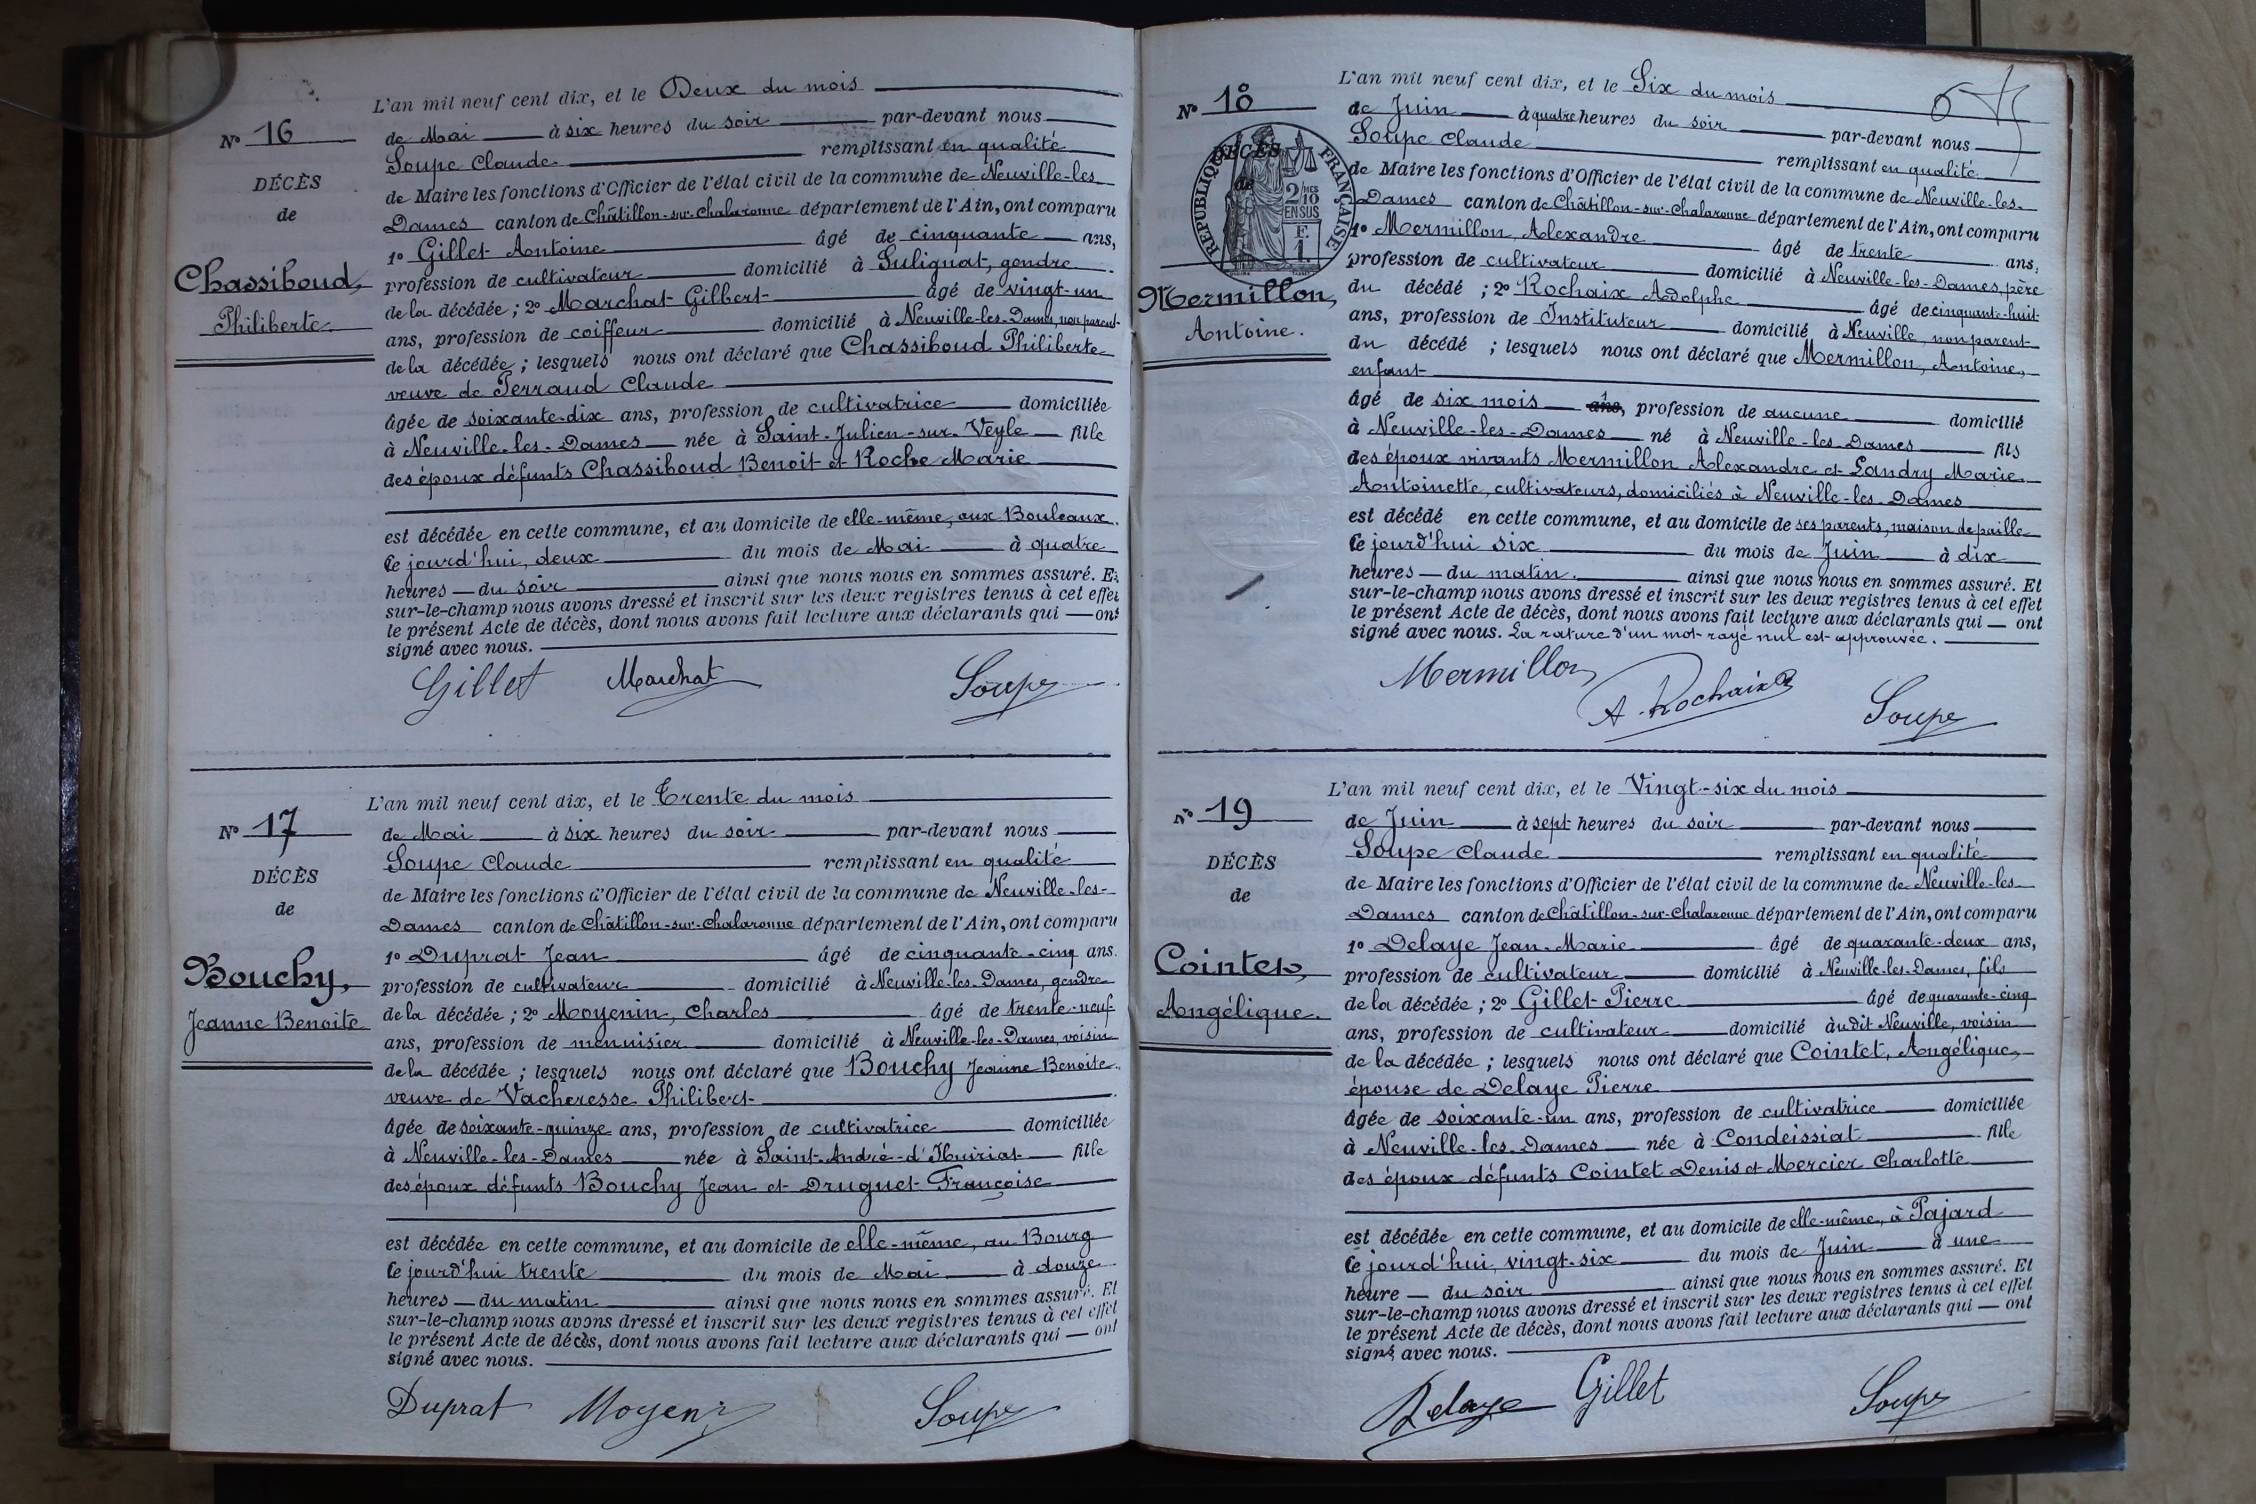 N° 16
DÉCÈS
de
Chassiboud,
Philiberte
L'an mil neuf cent dix, et le Deux du mois
de Mai à six heures du soir par-devant nous
Soupe Claude remplissant en qualité
de Maire les fonctions d'Officier de l'état civil de la commune de Neuville-les-
Dames canton de Châtillon-sur-Chalaronne département de l'Ain, ont comparu
1° Gillet Antoine âgé de cinquante ans,
profession de cultivateur domicilié à Sulignat, gendre
de la décédée ; 2° Marchat Gilbert âgé de vingt-un
ans, profession de coiffeur domicilié à Neuville-les-Dames, non parent
de la décédée ; lesquels nous ont déclaré que Chassiboud Philiberte
veuve de Perraud Claude
âgée de soixante-dix ans, profession de cultivatrice domiciliée
à Neuville-les-Dames née à Saint-Julien-sur-Veyle fille
des époux défunts Chassiboud Benoit et Roche Marie
est décédée en cette commune, et au domicile de elle-même, aux Bouleaux
ce jourd'hui, deux du mois de Mai à quatre
heures du soir ainsi que nous nous en sommes assuré. Et
sur-le-champ nous avons dressé et inscrit sur les deux registres tenus à cet effet
le présent Acte de décès, dont nous avons fait lecture aux déclarants qui — ont
signé avec nous.
Gillet Marchat Soupe
N° 17
DÉCÈS
de
Bouchy,
Jeanne Benoite
L'an mil neuf cent dix, et le Trente du mois
de Mai à six heures du soir par-devant nous
Soupe Claude remplissant en qualité
de Maire les fonctions d'Officier de l'état civil de la commune de Neuville-les-
Dames canton de Châtillon-sur-Chalaronne département de l'Ain, ont comparu
1° Duprat Jean âgé de cinquante-cinq ans.
profession de cultivateur domicilié à Neuville-les-Dames, gendre
de la décédée ; 2° Moyenin, Charles âgé de trente-neuf
ans, profession de menuisier domicilié à Neuville-les-Dames, voisin
de la décédée ; lesquels nous ont déclaré que Bouchy Jeanne Benoite
veuve de Vacheresse Philibert
âgée de soixante-quinze ans, profession de cultivatrice domiciliée
à Neuville-les-Dames née à Saint-André-d'Huiriat fille
des époux défunts Bouchy Jean et Druguet Françoise
est décédée en cette commune, et au domicile de elle-même, au Bourg
ce jourd'hui trente du mois de Mai à douze
heures — du matin ainsi que nous nous en sommes assuré. Et
sur-le-champ nous avons dressé et inscrit sur les deux registres tenus à cet effet
le présent Acte de décès, dont nous avons fait lecture aux déclarants qui — ont
signé avec nous.
Duprat Moyenin Soupe
N° 18
DÉCÈS
de
RÉPUBLIQUE FRANÇAISE
2/10 MES
EN SUS
F.
1.
Mermillon,
Antoine.
L'an mil neuf cent dix, et le Six du mois
de Juin à quatre heures du soir par-devant nous
Soupe Claude remplissant en qualité
de Maire les fonctions d'Officier de l'état civil de la commune de Neuville-les-
Dames canton de Châtillon-sur-Chalaronne département de l'Ain, ont comparu
1° Mermillon, Alexandre âgé de trente ans,
profession de cultivateur domicilié à Neuville-les-Dames, père
du décédé ; 2° Rochaix Adolphe âgé de cinquante-huit
ans, profession de Instituteur domicilié à Neuville, non parent
du décédé ; lesquels nous ont déclaré que Mermillon, Antoine,
enfant
âgé de six mois ans, profession de aucune domicilié
à Neuville-les-Dames né à Neuville-les-Dames fils
des époux vivants Mermillon Alexandre et Landry Marie
Antoinette, cultivateurs, domiciliés à Neuville-les-Dames
est décédé en cette commune, et au domicile de ses parents, maison de paille
ce jourd'hui six du mois de Juin à dix
heures — du matin. ainsi que nous nous en sommes assuré. Et
sur-le-champ nous avons dressé et inscrit sur les deux registres tenus à cet effet
le présent Acte de décès, dont nous avons fait lecture aux déclarants qui — ont
signé avec nous. La rature d'un mot rayé nul est approuvée.
Mermillon A. Rochaix Soupe
N° 19
DÉCÈS
de
Cointet,
Angélique.
L'an mil neuf cent dix, et le Vingt-six du mois
de Juin à sept heures du soir par-devant nous
Soupe Claude remplissant en qualité
de Maire les fonctions d'Officier de l'état civil de la commune de Neuville-les-
Dames canton de Châtillon-sur-Chalaronne département de l'Ain, ont comparu
1° Delaye Jean-Marie âgé de quarante-deux ans,
profession de cultivateur domicilié à Neuville-les-Dames, fils
de la décédée ; 2° Gillet Pierre âgé de quarante-cinq
ans, profession de cultivateur domicilié à udit Neuville, voisin
de la décédée ; lesquels nous ont déclaré que Cointet, Angélique,
épouse de Delaye Pierre
âgée de soixante-un ans, profession de cultivatrice domiciliée
à Neuville-les-Dames née à Condeissiat fille
des époux défunts Cointet Denis et Mercier Charlotte
est décédée en cette commune, et au domicile de elle-même, à Pajard
ce jourd'hui, vingt-six du mois de Juin à une
heure — du soir ainsi que nous nous en sommes assuré. Et
sur-le-champ nous avons dressé et inscrit sur les deux registres tenus à cet effet
le présent Acte de décès, dont nous avons fait lecture aux déclarants qui — ont
signé avec nous.
Delaye Gillet Soupe